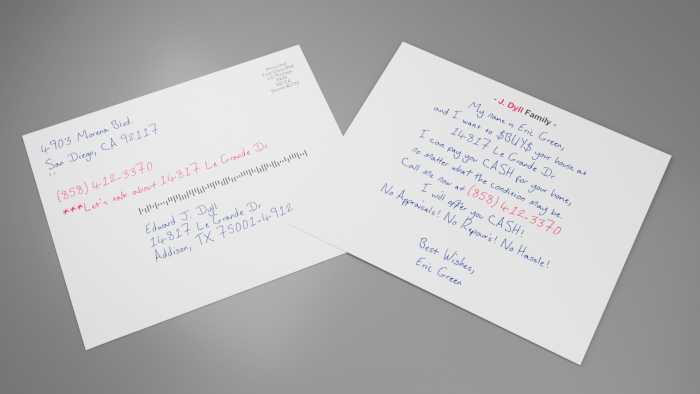 4903 Morena Blvd.
San Diego, CA 92117
(858) 412-3370
***Let's talk about 14817 Le Grande Dr
Edward J. Dyll
14817 Le Grande Dr
Addison, TX 75001-4912
- J. Dyll Family -
My name is Eric Green,
and I want to $BUY$ your house at
14817 Le Grande Dr
I can pay you CASH for your home,
no matter what the condition may be.
Call me now at (858) 412-3370
I will offer you CASH!
No Appraisals! No Repairs! No Hassle!
Best Wishes,
Eric Green